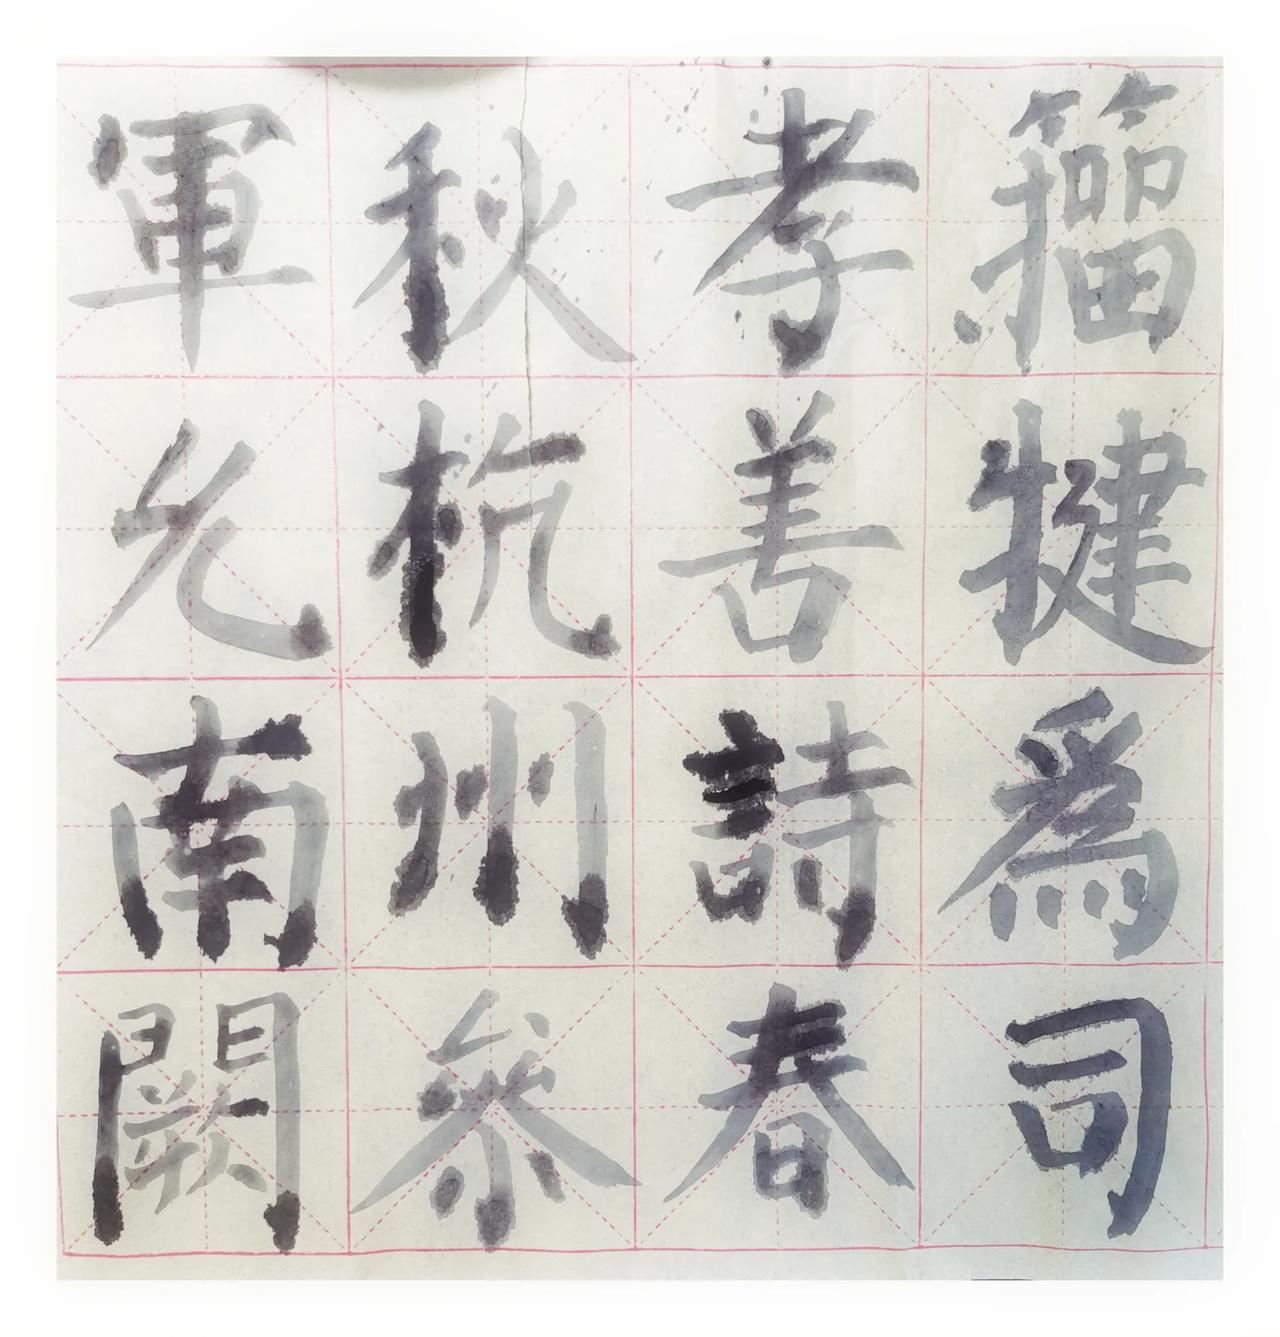 籕犍爲司
孝善詩春
秋杭州參
軍允南闕